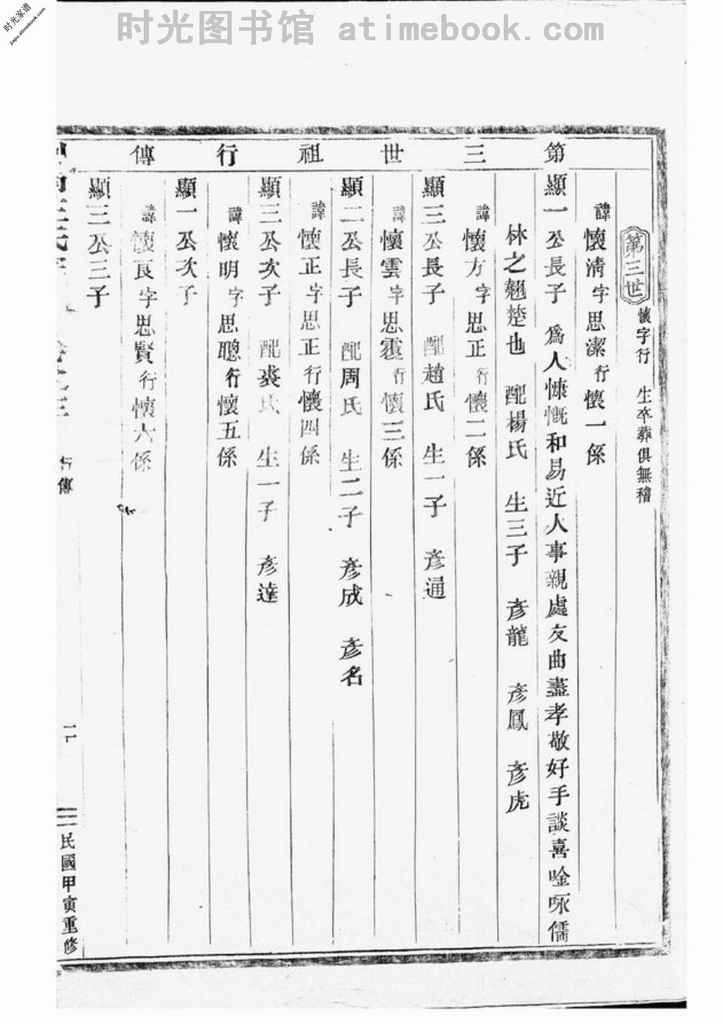 时光图书馆 atimebook.com
时光家谱
jiapu.atimebook.com
第三世祖行傳
第三世 懷字行 生卒葬俱無稽
諱懷清字思潔行懷一係
顯一公長子 爲人慷慨和易近人事親處友曲盡孝敬好手談喜唫咏儒
林之翹楚也 配楊氏 生三子 彦龍 彦鳳 彦虎
諱懷方字思正行懷二係
顯三公長子 配趙氏 生一子 彦通
諱懷雲字思霞行懷三係
顯二公長子 配周氏 生二子 彦成 彦名
諱懷正字思正行懷四係
顯三公次子 配裘氏 生一子 彦達
諱懷明字思聰行懷五係
顯一公次子
諱懷良字思賢行懷六係
顯三公三子
行傳
民國甲寅重修